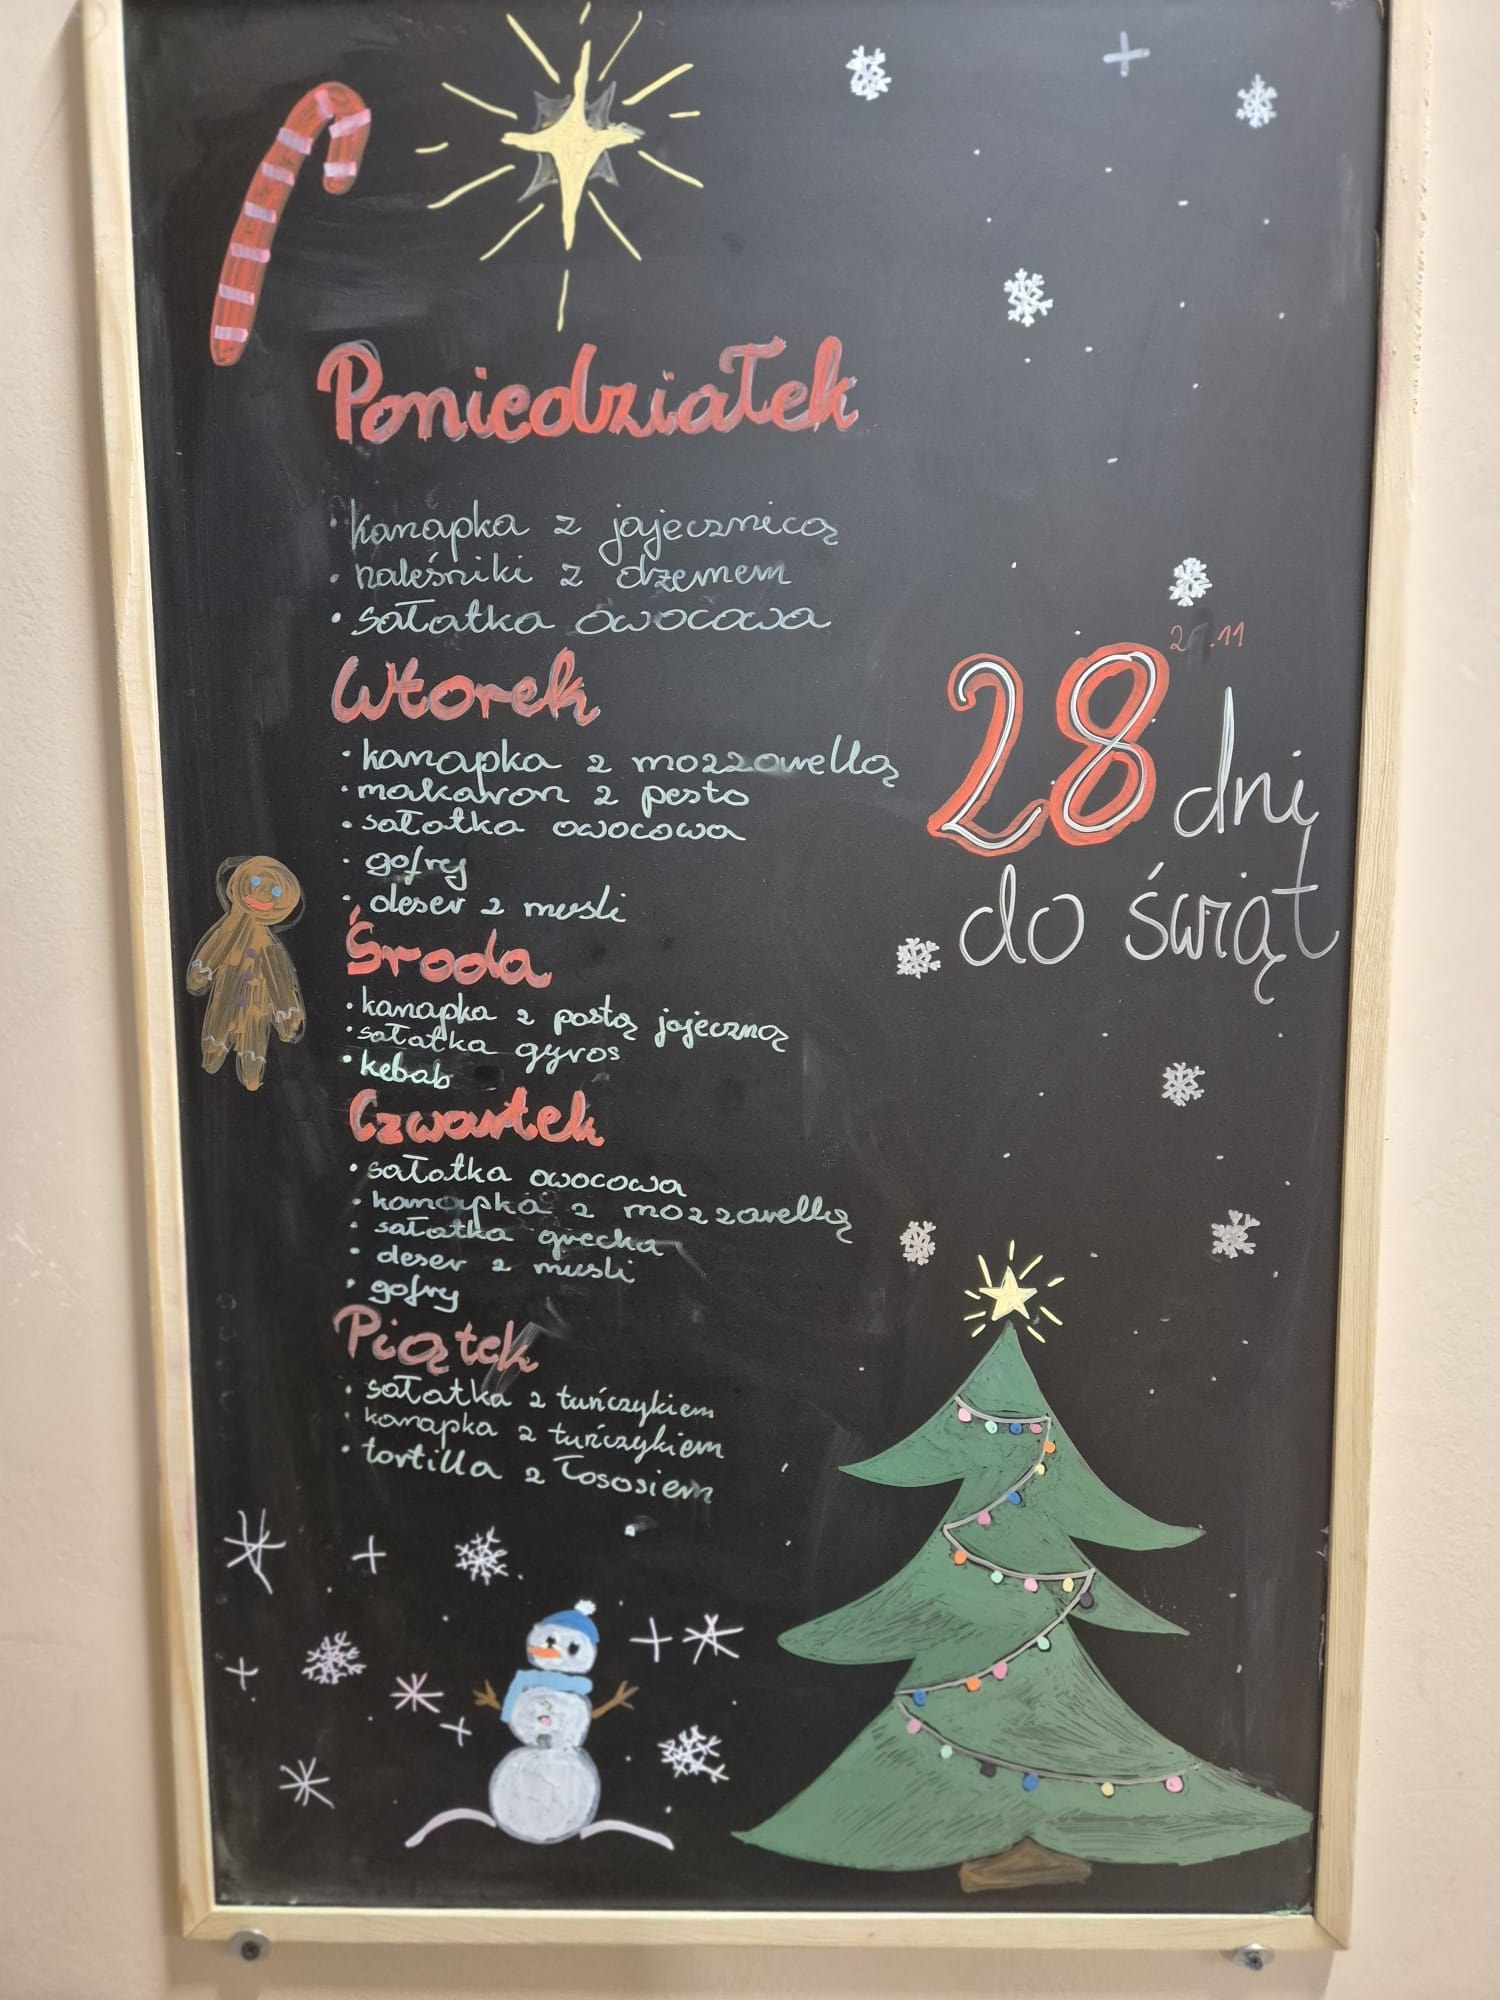 Poniedziałek
• kanapka z jajecznicą
• naleśniki z dżemem
• sałatka owocowa
Wtorek
• kanapka z mozzarellą
• makaron z pesto
• sałatka owocowa
• gofry
• deser z musli
Środa
• kanapka z pastą jajeczną
• sałatka gyros
• kebab
Czwartek
• sałatka owocowa
• kanapka z mozzarellą
• sałatka grecka
• deser z musli
• gofry
Piątek
• sałatka z tuńczykiem
• kanapka z tuńczykiem
• tortilla z łososiem
28 dni
do świąt